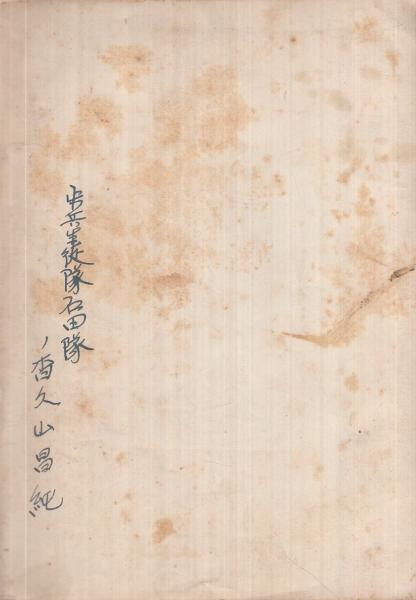 歩兵生徒隊石田隊
香久山昌純